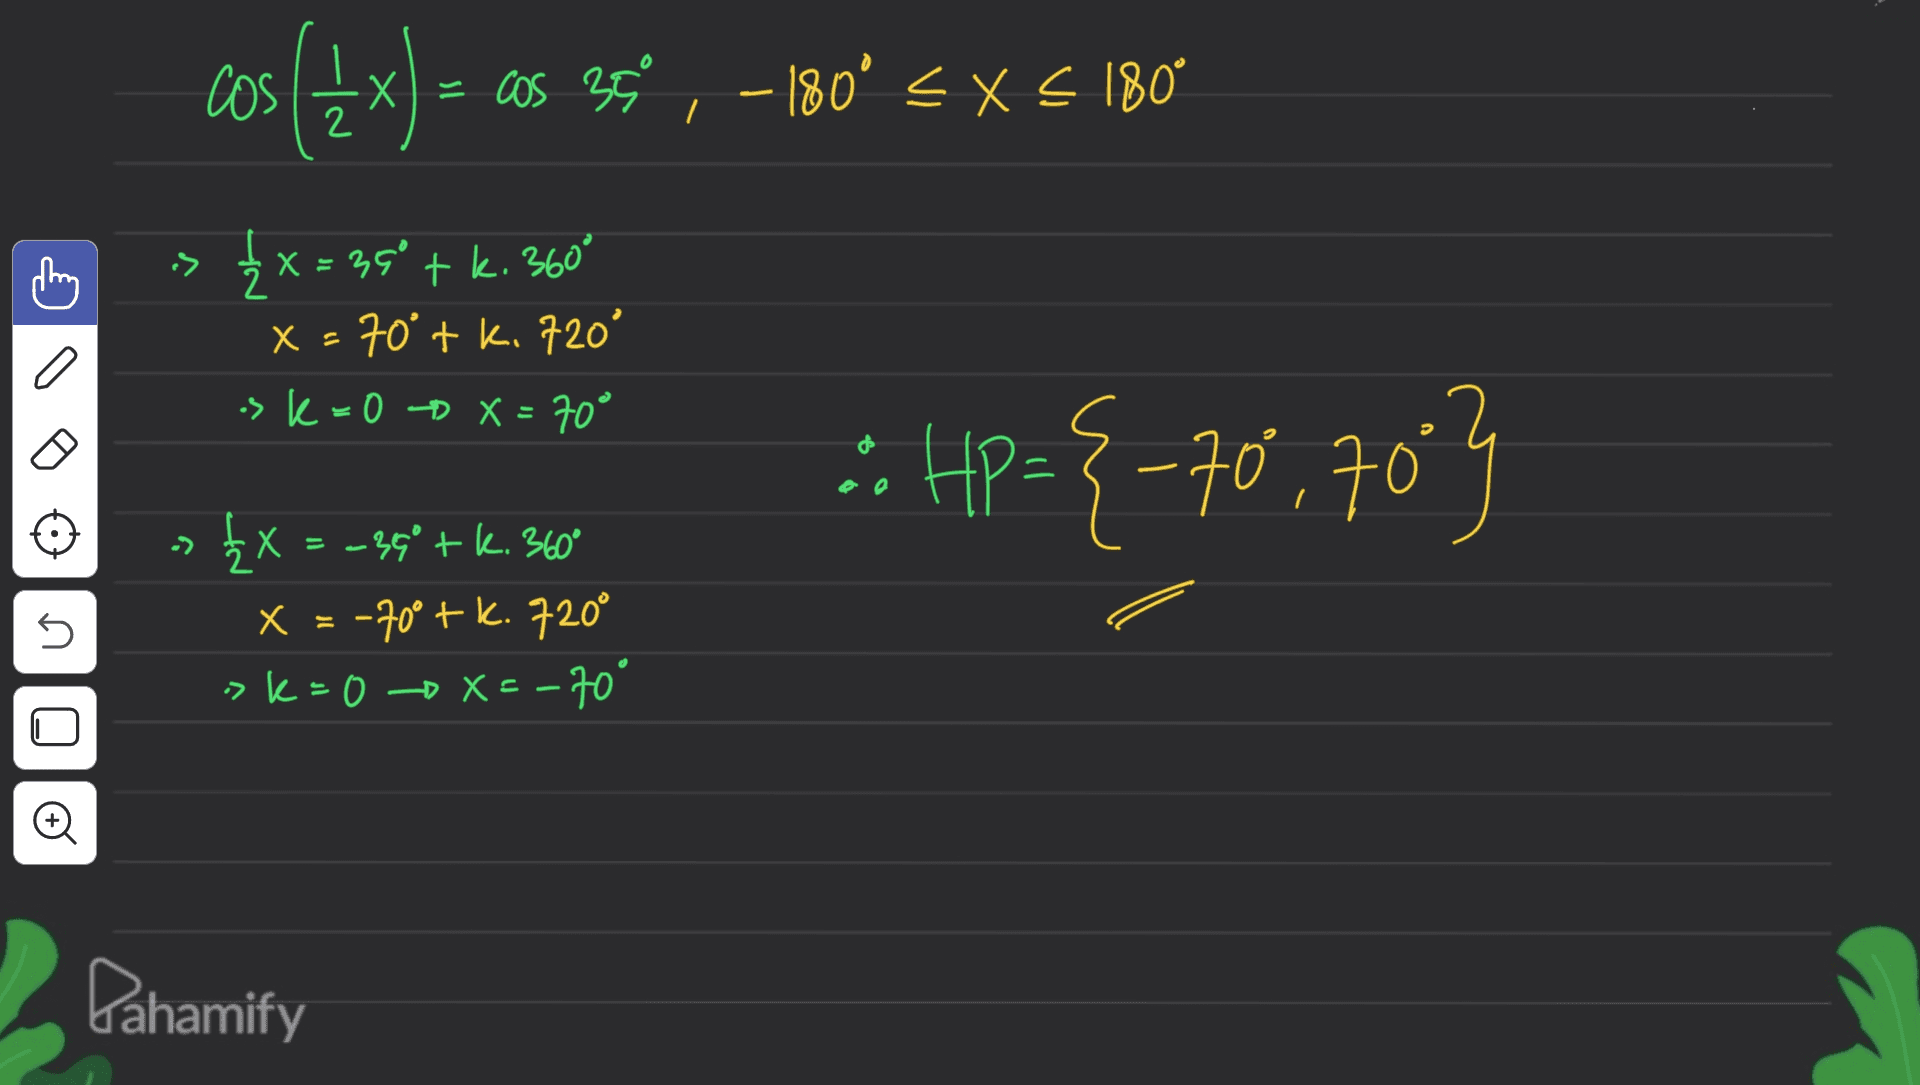 cos(1/2 x) = cos 35°, -180° ≤ x ≤ 180°
⇒ 1/2 x = 35° + k. 360°
x = 70° + k. 720°
⇒ k = 0 → x = 70°
⇒ 1/2 x = -35° + k. 360°
x = -70° + k. 720°
⇒ k = 0 → x = -70°
∴ HP = {-70°, 70°}
Pahamify